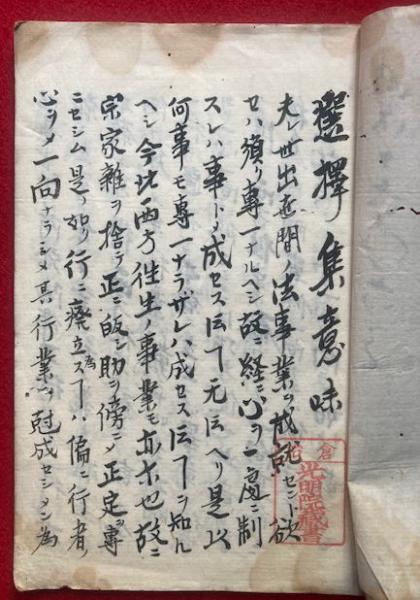 選擇集意味
夫レ世出世間ノ法事業ヲ成就セント欲
セハ須ク專一ナルヘシ故ニ経ニ心ヲ一處ニ制
スレハ事トメ成セス云丁无云ヘリ是以
何事モ專一ナラザレハ成セス云丁ヲ知ル
ヘシ今此西方往生ノ事業モ亦尓也故ニ
宗家雜ヲ捨テ正ニ皈シ助ヲ傍ニメ正定ヲ專
ニセシム是ノ如ク行ニ廢立ス丁ハ為偏ニ行者ノ
心ヲメ一向ナラシメ其行業ヲ尅成セシメン為
光明